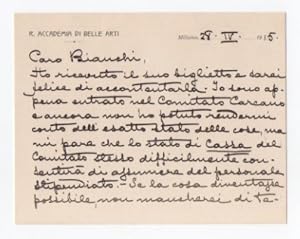 R. ACCADEMIA DI BELLE ARTI
Milano, 28 · IV · 1915 ·
Caro Bianchi,
Ho ricevuto il suo biglietto e sarei
felice di accontentarla. Io sono ap-
pena entrato nel Comitato Carcano
e ancora non ho potuto rendermi
conto dell'esatto stato delle cose, ma
mi pare che lo stato di Cassa del
Comitato stesso difficilmente con-
sentirà di assumere del personale
stipendiato. - Se la cosa diventasse
possibile, non mancherei di te-